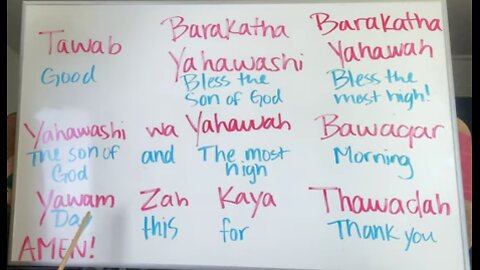 Tawab Barakatha Barakatha
Yahawashi Yahawah
Good Bless the Bless the
son of God most high!
Yahawashi wa Yahawah Bawaqar
The son of and The most Morning
God high
Yawam Zah Kaya Thawadah
Da this for Thank you
AMEN!